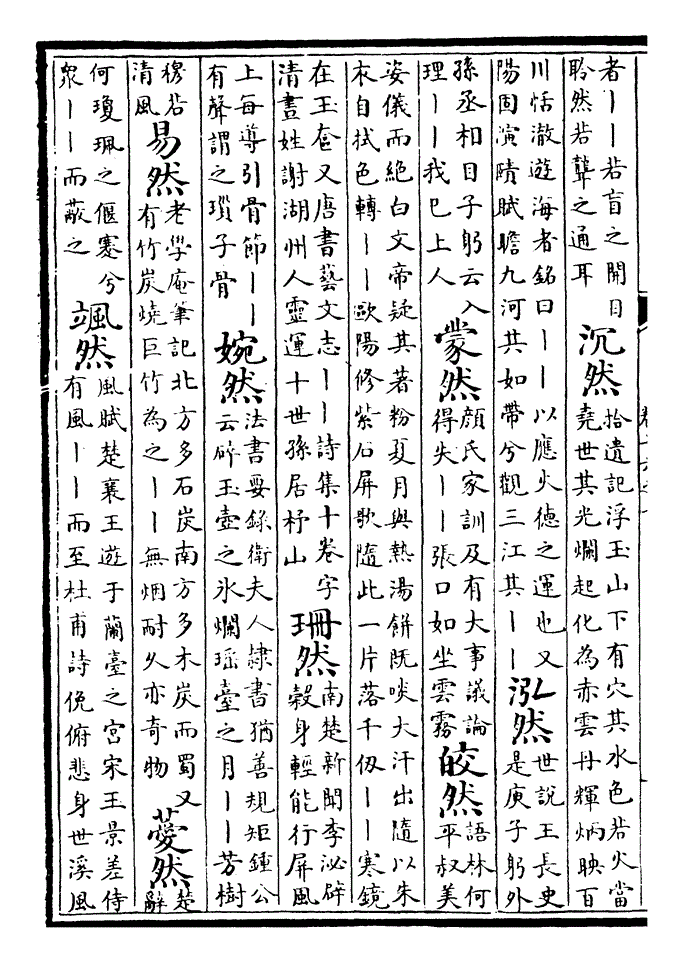 者丨丨若盲之開目
聆然若聾之通耳
沉然
拾遺記浮玉山下有穴其水色若火當
堯世其光爛起化為赤雲丹輝炳映百
川恬澈遊海者銘曰丨丨以應火德之運也又
陽固演賾賦瞻九河其如帶兮觀三江其丨丨
泓然
世說王長史
是庾子躬外
孫丞相目子躬云入
理丨丨我已上人
蒙然
顔氏家訓及有大事議論
得失丨丨張口如坐雲霧
皎然
語林何
平叔美
姿儀而絶白文帝疑其著粉夏月與熱湯餅既啖大汗出隨以朱
衣自拭色轉丨丨歐陽修紫石屏歌隨此一片落千仭丨丨寒鏡
在玉奩又唐書藝文志丨丨詩集十卷字
清晝姓謝湖州人靈運十世孫居杼山
珊然
南楚新聞李泌辟
穀身輕能行屏風
上每導引骨節丨丨
有聲謂之瑣子骨
婉然
法書要錄衛夫人隸書猶善規矩鍾公
云碎玉壺之氷爛瑶臺之月丨丨芳樹
穆若
清風
易然
老學庵筆記北方多石炭南方多木炭而蜀又
有竹炭燒巨竹為之丨丨無烟耐久亦奇物
薆然
楚
辭
何瓊珮之偃蹇兮
衆丨丨而蔽之
颯然
風賦楚襄王遊于蘭臺之宮宋玉景差侍
有風丨丨而至杜甫詩俛俯悲身世溪風